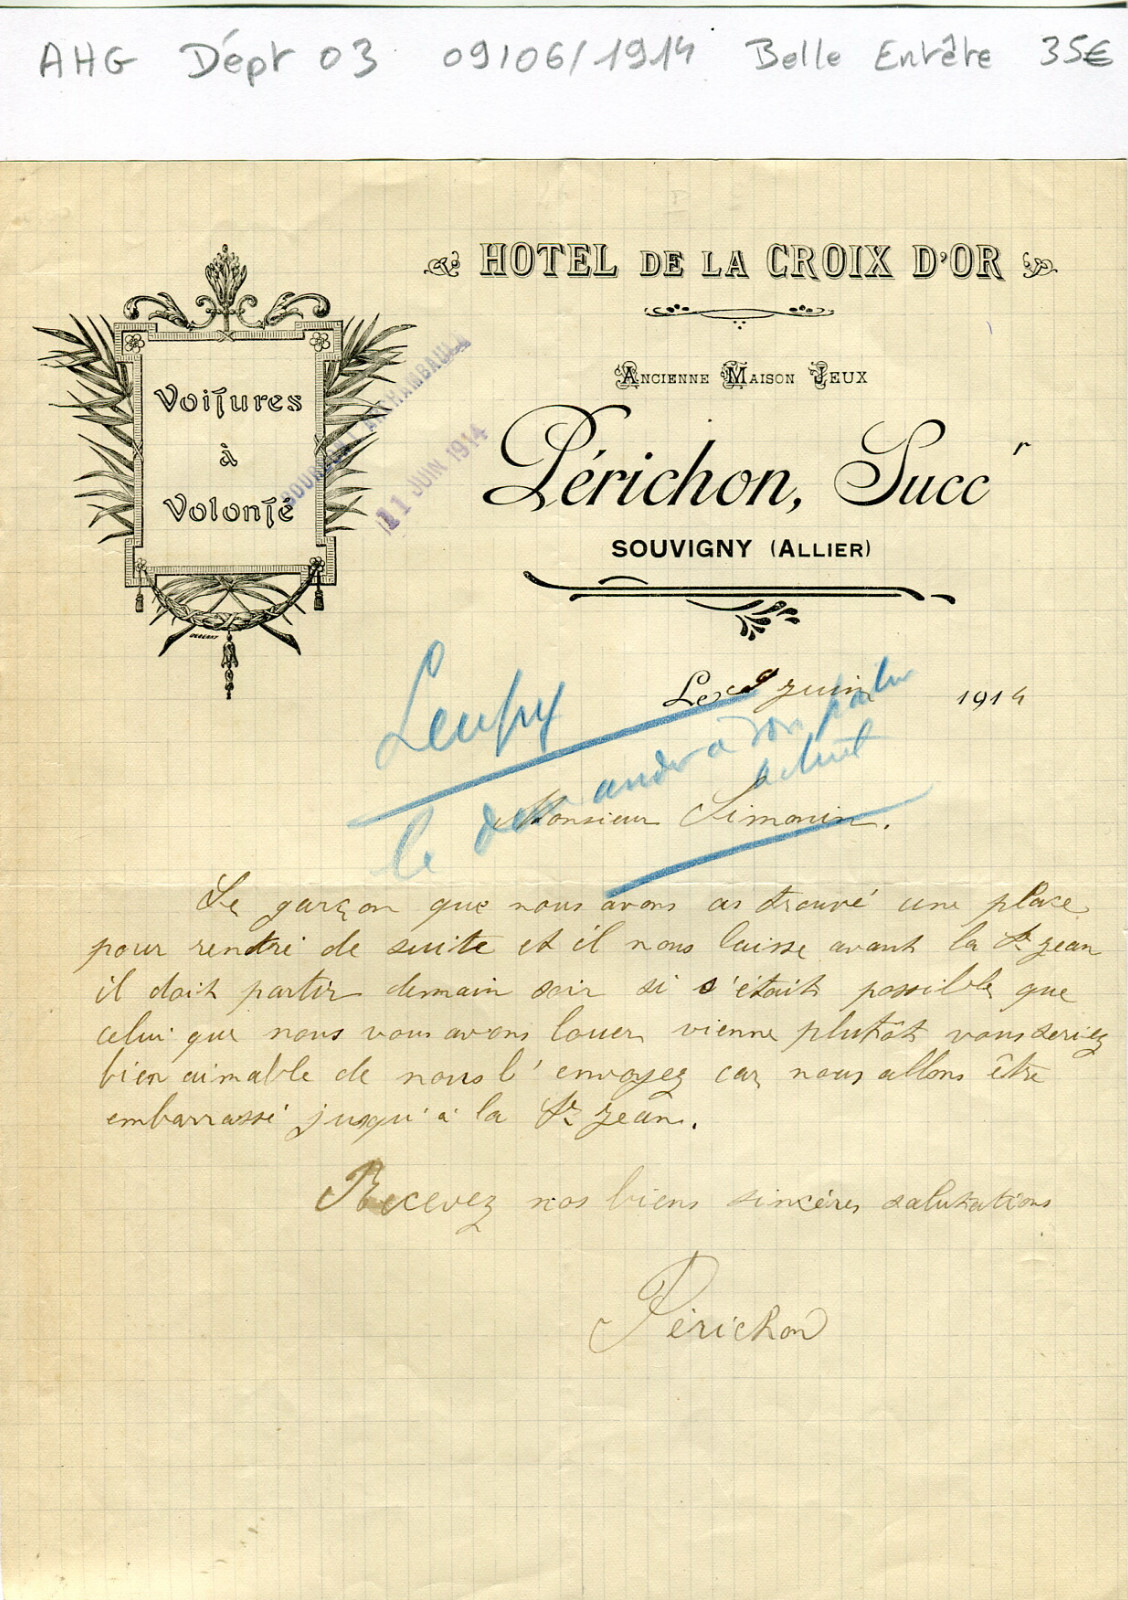 AHG Dépt 03 09/06/1914 Belle Entête 35€
HOTEL DE LA CROIX D'OR
ANCIENNE MAISON JEUX
Périchon, Succr
SOUVIGNY (ALLIER)
Voitures
à
Volonté
BOURBON L'ARCHAMBAULT
11 JUIN 1914
Le 9 juin 1914
le demander à son
Monsieur Simonin.
Le garçon que nous avons as trouvé une place
pour rentré de suite et il nous laisse avant la St jean
il doit partir demain soir si s'était possible que
celui que nous vous avons louer vienne plutôt vous seriez
bien aimable de nous l'envoyez car nous allons être
embarrassé jusqu'à la St jean.
Recevez nos biens sincéres salutations
Périchon